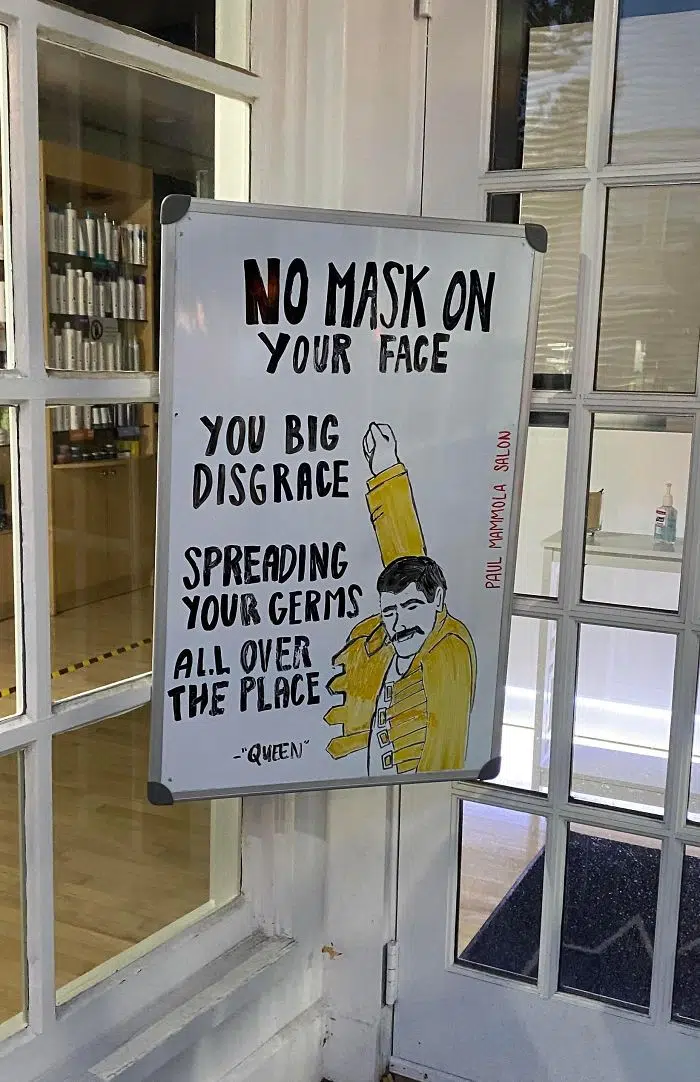 NO MASK ON
YOUR FACE
YOU BIG
DISGRACE
SPREADING
YOUR GERMS
ALL OVER
THE PLACE
-"QUEEN"
PAUL MAMMOLA SALON